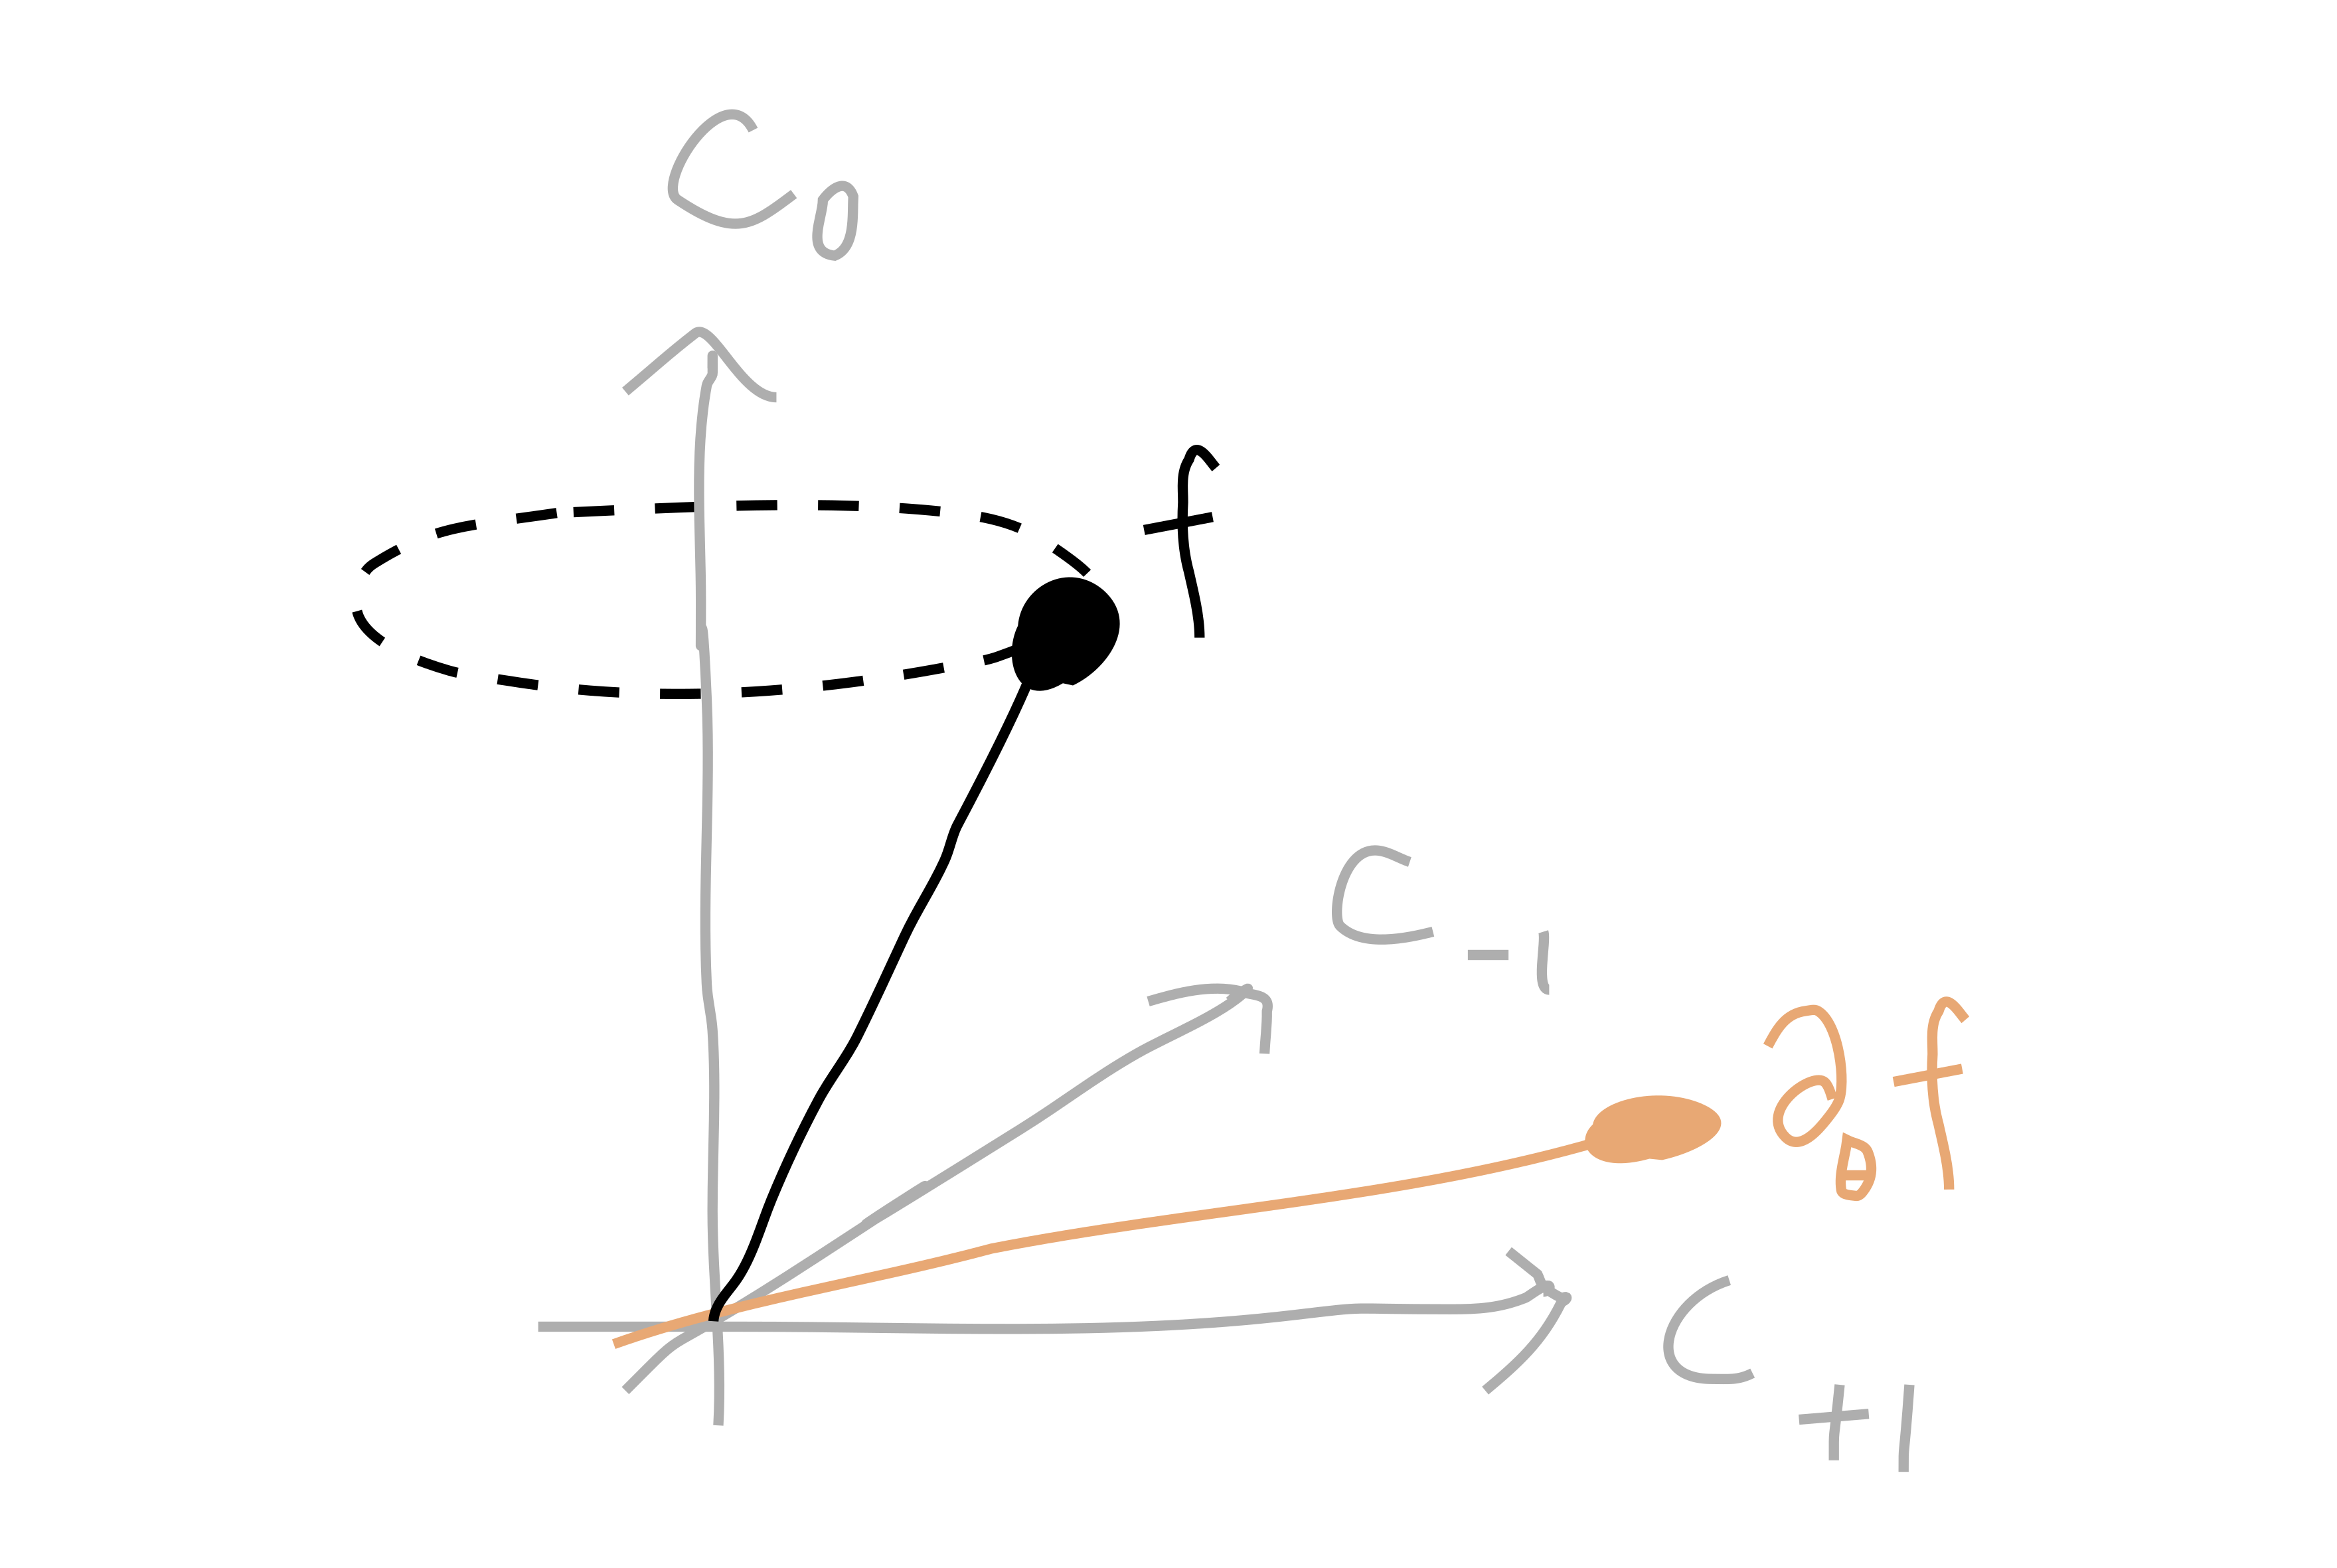 C₀
f
C₋₁
∂_θ f
C₊₁